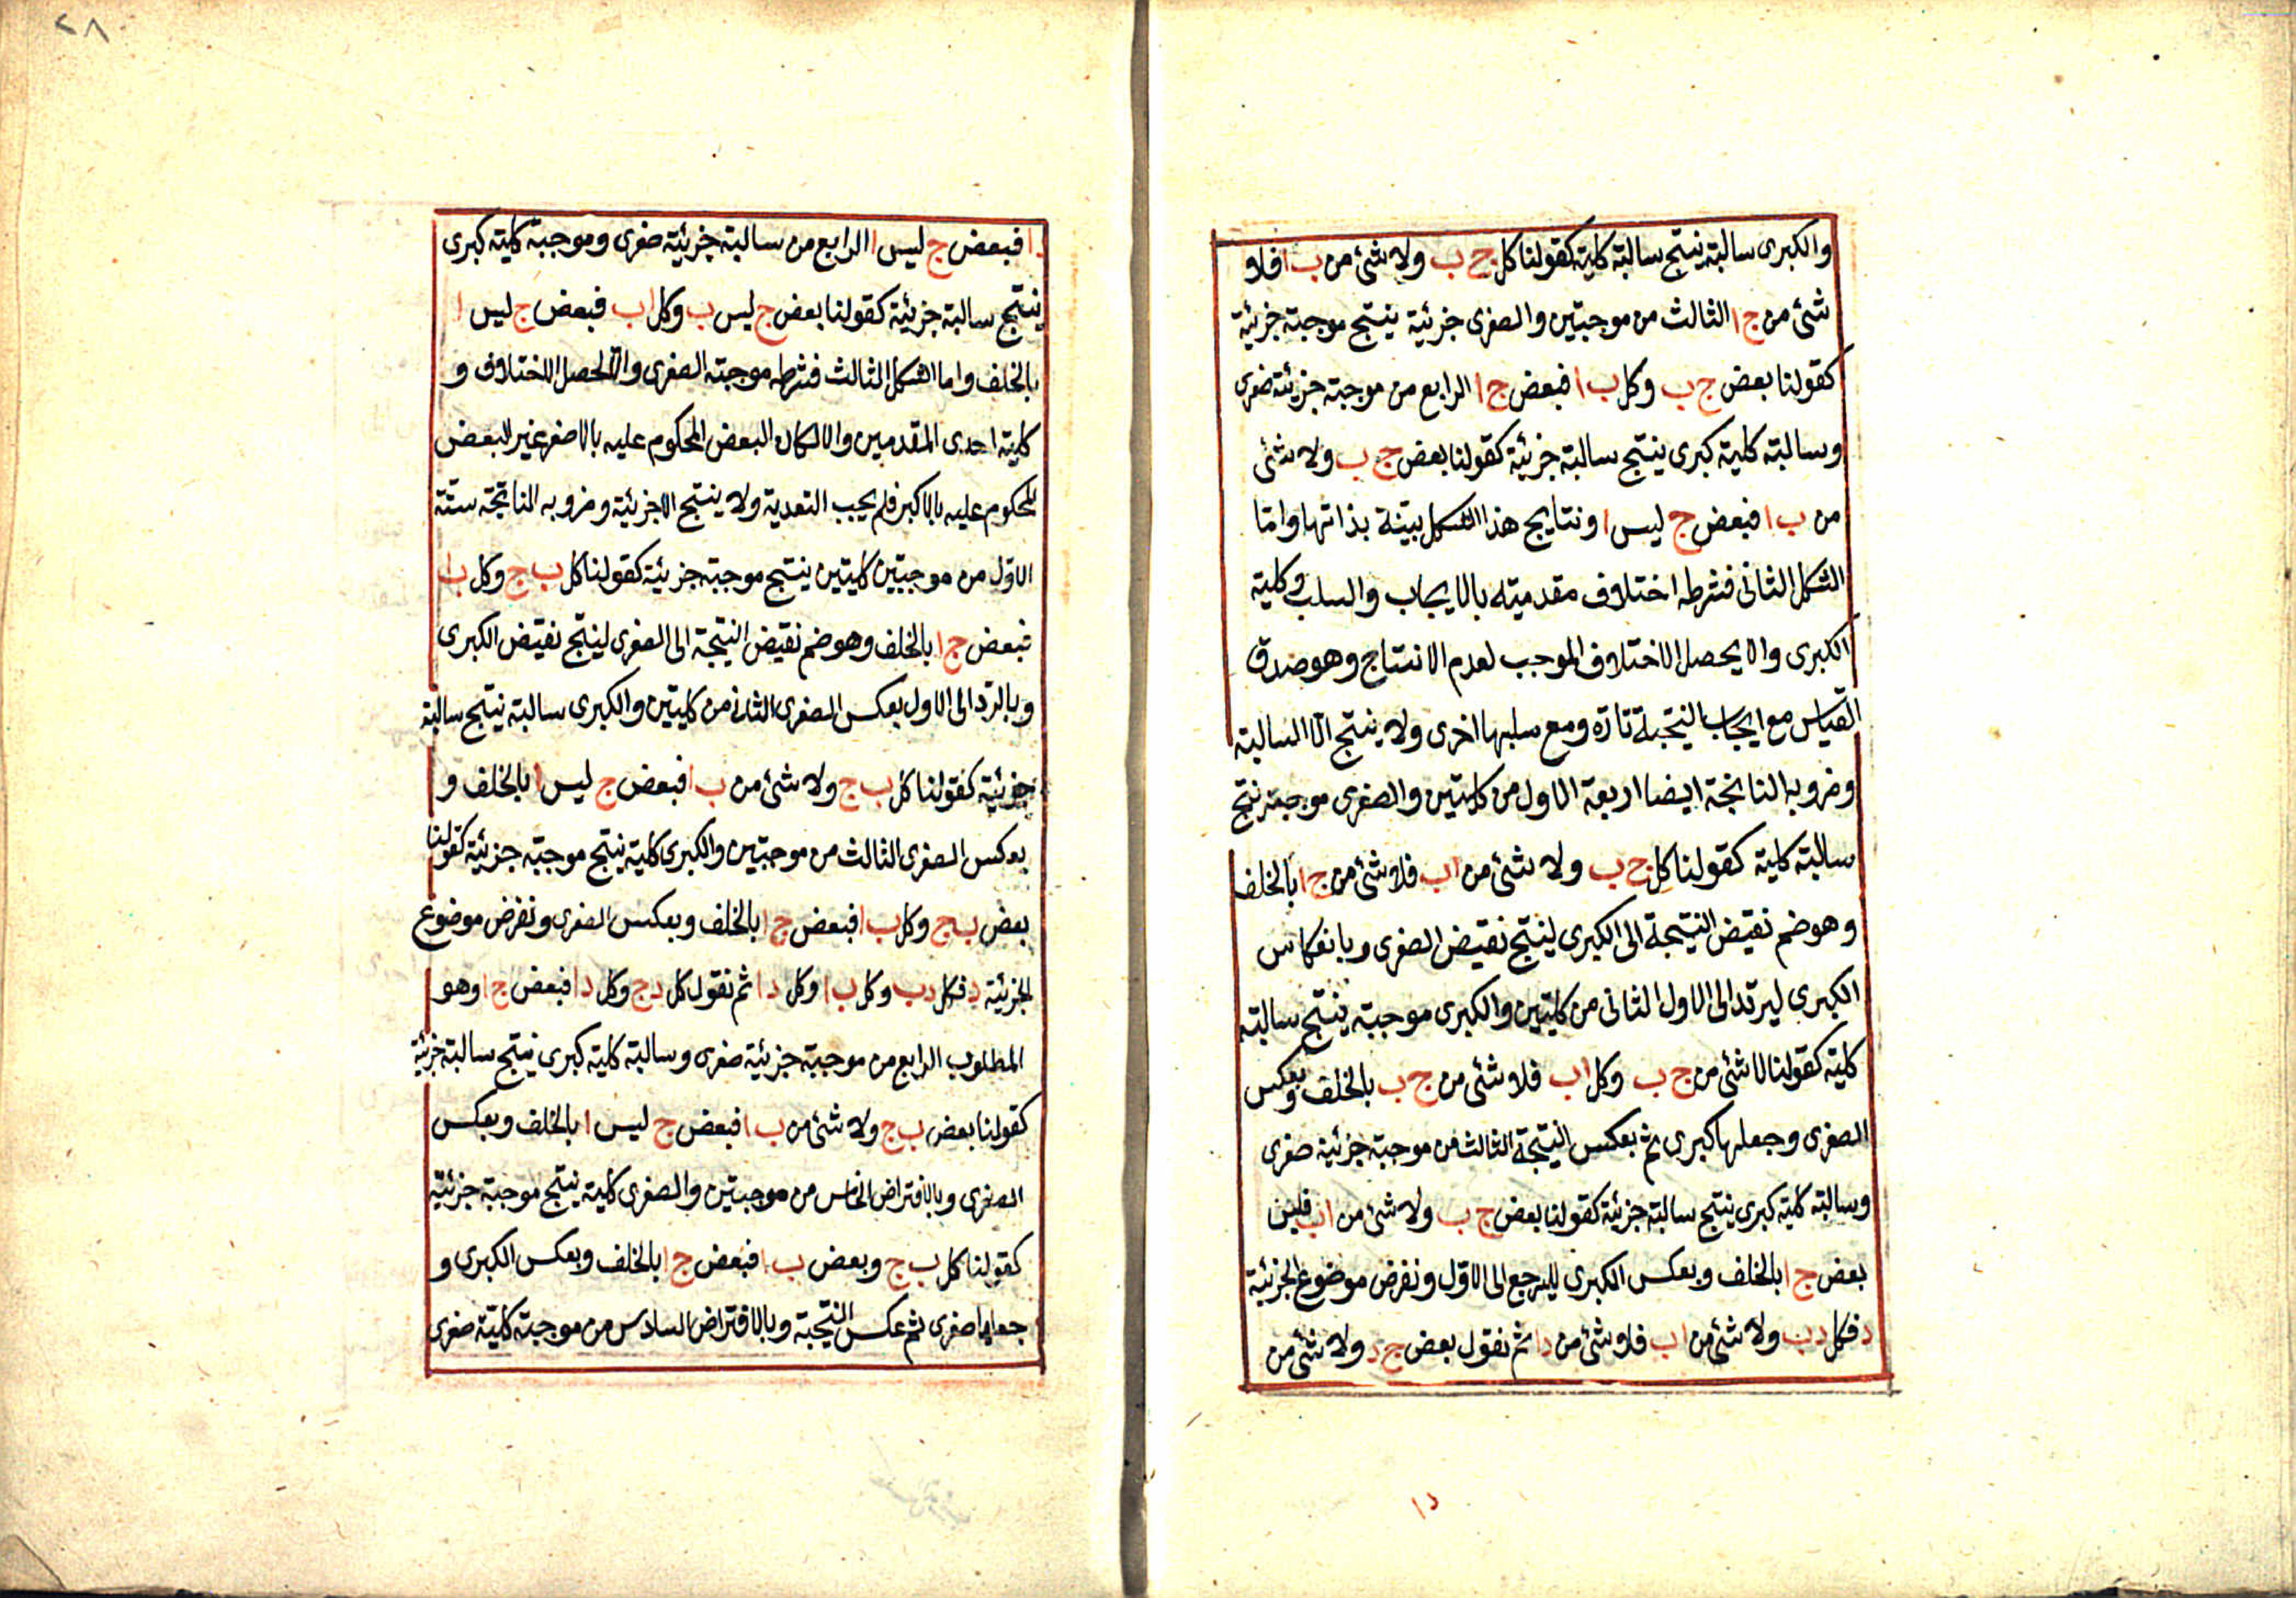 والكبرى سالبة ينتج سالبة كلية كقولنا كل ج ب ولا شئ من ب ا فلا
شئ من ج ا الثالث من موجبتين والصغرى جزئية ينتج موجبة جزئية
كقولنا بعض ج ب وكل ب ا فبعض ج ا الرابع من موجبة جزئية صغرى
وسالبة كلية كبرى ينتج سالبة جزئية كقولنا بعض ج ب ولا شئ
من ب ا فبعض ج ليس ا ونتايج هذا الشكل بينة بذاتها واما
الشكل الثانى فشرطه اختلاف مقدميته بالايجاب والسلب و كلية
الكبرى والا يحصل الاختلاف الموجب لعدم الانتاج وهو صدق
القياس مع ايجاب النتيجة تارة ومع سلبها اخرى ولا ينتج الا السالبة
وضروبه الناتجة ايضا اربعة الاول من كليتين والصغرى موجبة ينتج
سالبة كلية كقولنا كل ج ب ولا شئ من ا ب فلا شئ من ج ا بالخلف
وهو ضم نقيض النتيجة الى الكبرى لينتج نقيض الصغرى وبانعكاس
الكبرى ليرتد الى الاول الثانى من كليتين والكبرى موجبة ينتج سالبة
كلية كقولنا لا شئ من ج ب وكل ا ب فلا شئ من ج ب بالخلف وبعكس
الصغرى وجعلها كبرى ثم بعكس النتيجة الثالث من موجبة جزئية صغرى
وسالبة كلية كبرى ينتج سالبة جزئية كقولنا بعض ج ب ولا شئ من ا ب فليس
بعض ج ا بالخلف وبعكس الكبرى لليرجع الى الاول ونفرض موضوع الجزئية
د فكل د ب ولا شئ من ا ب فلا شئ من د ا ثم نقول بعض ج د ولا شئ من
د ا
٢٨
د ا فبعض ج ليس ا الرابع من سالبة جزئية صغرى وموجبة كلية كبرى
ينتج سالبة جزئية كقولنا بعض ج ليس ب وكل ا ب فبعض ج ليس ا
بالخلف واما الشكل الثالث فشرطه موجبة الصغرى والا لحصل الاختلاف و
كلية احدى المقدمين والا لكان البعض المحكوم عليه بالاصغر غير البعض
المحكوم عليه بالاكبر فلم يجب التعدية ولا ينتج الا جزئية وضروبه الناتجة ستة
الاول من موجبتين كليتين ينتج موجبة جزئية كقولنا كل ب ج وكل ب ا
فبعض ج ا بالخلف وهو ضم نقيض النتيجة الى الصغرى لينتج نقيض الكبرى
وبالرد الى الاول بعكس الصغرى الثانى من كليتين والكبرى سالبة ينتج سالبة
جزئية كقولنا كل ب ج ولا شئ من ب ا فبعض ج ليس ا بالخلف و
بعكس الصغرى الثالث من موجبتين والكبرى كلية ينتج موجبة جزئية كقولنا
بعض ب ج وكل ب ا فبعض ج ا بالخلف وبعكس الصغرى ونفرض موضوع
الجزئية د فكل د ب وكل ب ا وكل د ا ثم نقول كل د ج وكل د ا فبعض ج ا وهو
المطلوب الرابع من موجبة جزئية صغرى وسالبة كلية كبرى ينتج سالبة جزئية
كقولنا بعض ب ج ولا شئ من ب ا فبعض ج ليس ا بالخلف وبعكس
الصغرى وبالافتراض الخامس من موجبتين والصغرى كلية ينتج موجبة جزئية
كقولنا كل ب ج وبعض ب ا فبعض ج ا بالخلف وبعكس الكبرى و
جعلها صغرى ثم عكس النتيجة وبالافتراض السادس من موجبة كلية صغرى